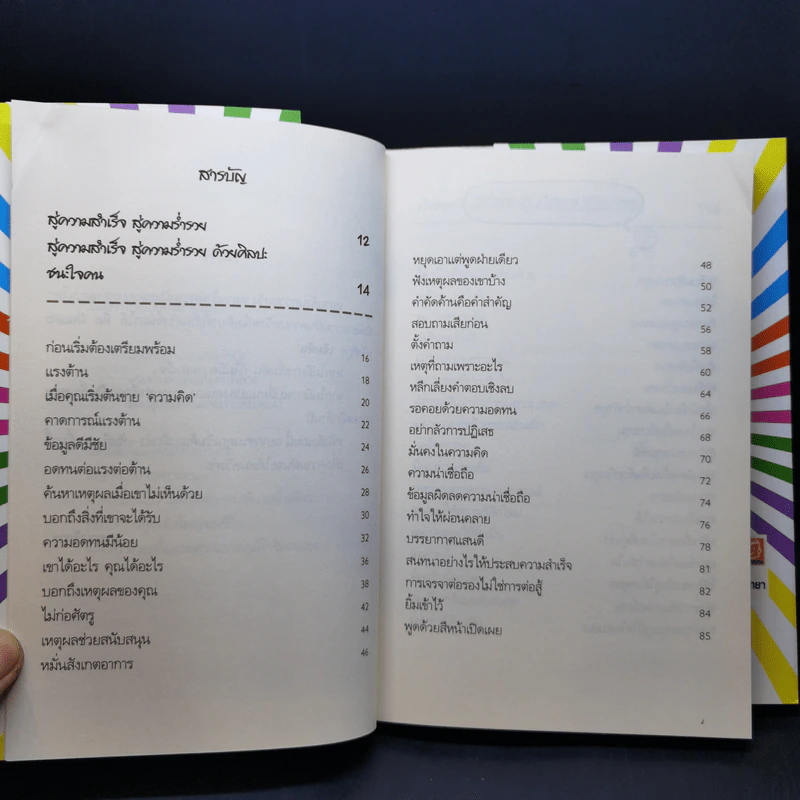 สารบัญ
สู่ความสำเร็จ สู่ความร่ำรวย 12
สู่ความสำเร็จ สู่ความร่ำรวย ด้วยศิลปะ
ชนะใจคน 14
ก่อนเริ่มต้องเตรียมพร้อม 16
แรงต้าน 18
เมื่อคุณเริ่มต้นขาย ‘ความคิด’ 20
คาดการณ์แรงต้าน 22
ข้อมูลดีมีชัย 24
อดทนต่อแรงต่อต้าน 26
ค้นหาเหตุผลเมื่อเขาไม่เห็นด้วย 28
บอกถึงสิ่งที่เขาจะได้รับ 30
ความอดทนมีน้อย 32
เขาได้อะไร คุณได้อะไร 36
บอกถึงเหตุผลของคุณ 38
ไม่ก่อศัตรู 42
เหตุผลช่วยสนับสนุน 44
หมั่นสังเกตอาการ 46
หยุดเอาแต่พูดฝ่ายเดียว 48
ฟังเหตุผลของเขาบ้าง 50
คำคัดค้านคือคำสำคัญ 52
สอบถามเสียก่อน 56
ตั้งคำถาม 58
เหตุที่ถามเพราะอะไร 60
หลีกเลี่ยงคำตอบเชิงลบ 64
รอคอยด้วยความอดทน 66
อย่ากลัวการปฏิเสธ 68
มั่นคงในความคิด 70
ความน่าเชื่อถือ 72
ข้อมูลผิดลดความน่าเชื่อถือ 74
ทำใจให้ผ่อนคลาย 76
บรรยากาศแสนดี 78
สนทนาอย่างไรให้ประสบความสำเร็จ 81
การเจรจาต่อรองไม่ใช่การต่อสู้ 82
ยิ้มเข้าไว้ 84
พูดด้วยสีหน้าเปิดเผย 85